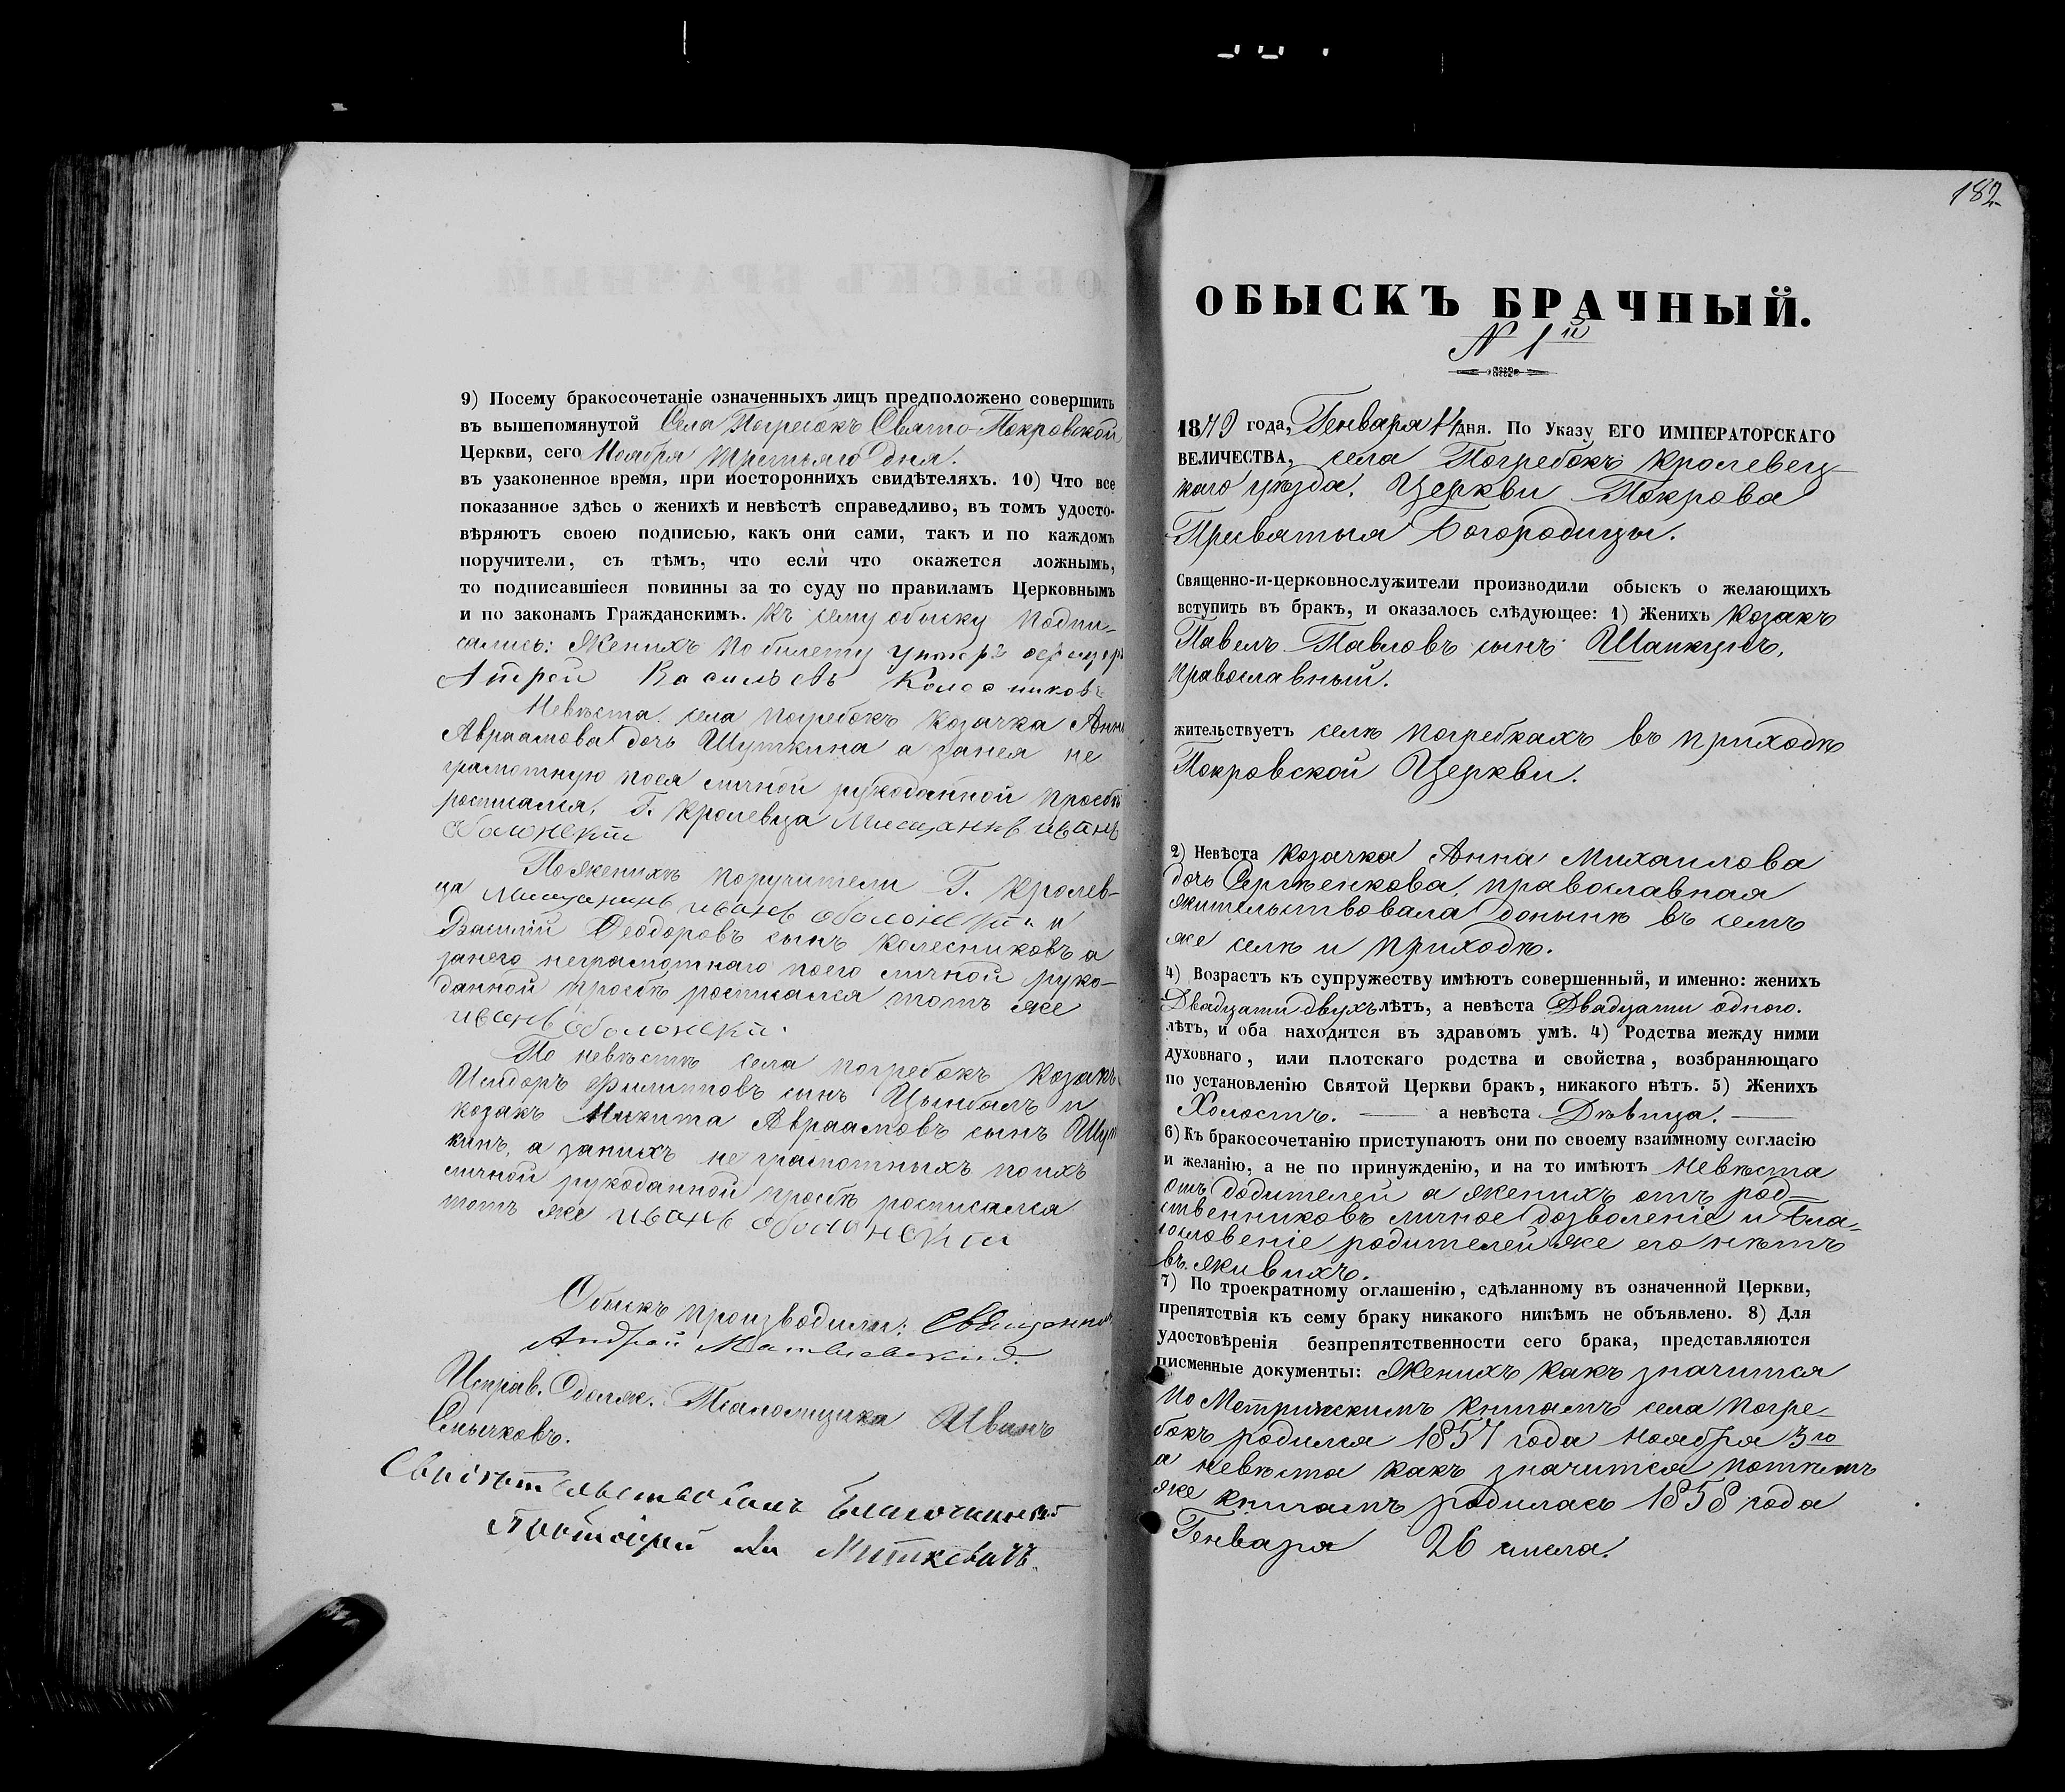 9) Посему бракосочетаніе означенныхъ лицъ предположено совершить
въ вышепомянутой Села Погребокъ Свято-Покровской
Церкви, сего Ноября третьяго дня.
въ узаконенное время, при постороннихъ свидѣтеляхъ. 10) Что все
показанное здѣсь о женихѣ и невѣстѣ справедливо, въ томъ удосто-
вѣряютъ своею подписью, какъ они сами, такъ и по каждомъ
поручители, съ тѣмъ, что если что окажется ложнымъ,
то подписавшіеся повинны за то суду по правиламъ Церковнымъ
и по законамъ Гражданскимъ. Къ сему обыску подпи-
сались: Женихъ по билету
Васильевъ
Невѣста села Погребокъ козачка Анна
Авраамова дочь Шуткина а занея не
грамотную поея личной рукоданной просбѣ
росписался, Г. Кролевца Мещанинъ иванъ
оболонскій
По женихѣ поручители Г. Кролев-
ца Мещанинъ иванъ оболонскій и
Василій Феодоровъ сынъ Колесниковъ а
занего неграмотнаго поего личной руко-
данной просбѣ росписался тотъ же
иванъ оболонскій.
По невѣстѣ села Погребокъ козакъ
Исидоръ Филиповъ сынъ Цымбалъ и
козакъ Никита Авраамовъ сынъ Шут
кинъ, а занихъ не грамотныхъ поихъ
личной рукоданной просбѣ росписался
тотъ же иванъ оболонскій
Обыскъ производили: Священник
Андрей Матвіевскій.
Исправ. Должн. Псаломщика Иванъ
Смычковъ.
Свидѣтельствовалъ Благочинный
Протоіерей
182
ОБЫСКЪ БРАЧНЫЙ.
N 1й
1879 года, Генваря 14 дня. По Указу ЕГО ИМПЕРАТОРСКАГО
ВЕЛИЧЕСТВА, села Погребокъ Кролевец-
каго уѣзда, Церкви Покрова
Пресвятыя Богородицы.
Священно-и-церковнослужители производили обыскъ о желающихъ
вступить въ бракъ, и оказалось слѣдующее: 1) Женихъ Козакъ
Павелъ Павловъ сынъ
православный.
жительствуетъ селѣ Погребкахъ въ приходѣ
Покровской Церкви.
2) Невѣста Козачка Анна Михаилова
дочь Сергѣенкова, православная
жительствовала донынѣ въ семъ
же селѣ и приходѣ.
4) Возрастъ къ супружеству имѣютъ совершенный, и именно: женихъ
Двадцати двухъ лѣтъ, а невѣста Двадцати одного.
лѣтъ, и оба находятся въ здравомъ умѣ. 4) Родства между ними
духовнаго, или плотскаго родства и свойства, возбраняющаго
по установленію Святой Церкви бракъ, никакого нѣтъ. 5) Женихъ
Холостъ. — а невѣста Дѣвица. —
6) Къ бракосочетанію приступаютъ они по своему взаимному согласію
и желанію, а не по принужденію, и на то имѣютъ Невѣста
отъ додителей а женихъ отъ род-
ственниковъ личное дозволеніе и бла-
гословеніе родителей же его нѣтъ
въ живихъ.
7) По троекратному оглашенію, сдѣланному въ означенной Церкви,
препятствія къ сему браку никакого никѣмъ не объявлено. 8) Для
удостовѣренія безпрепятственности сего брака, представляются
писменные документы: Женихъ какъ значится
по Метрическимъ книгамъ села Погре-
бокъ родился 1857 года Ноября 3го
а невѣста какъ значится потѣмъ
же книгамъ родилась 1858 года
Генваря 26 числа.